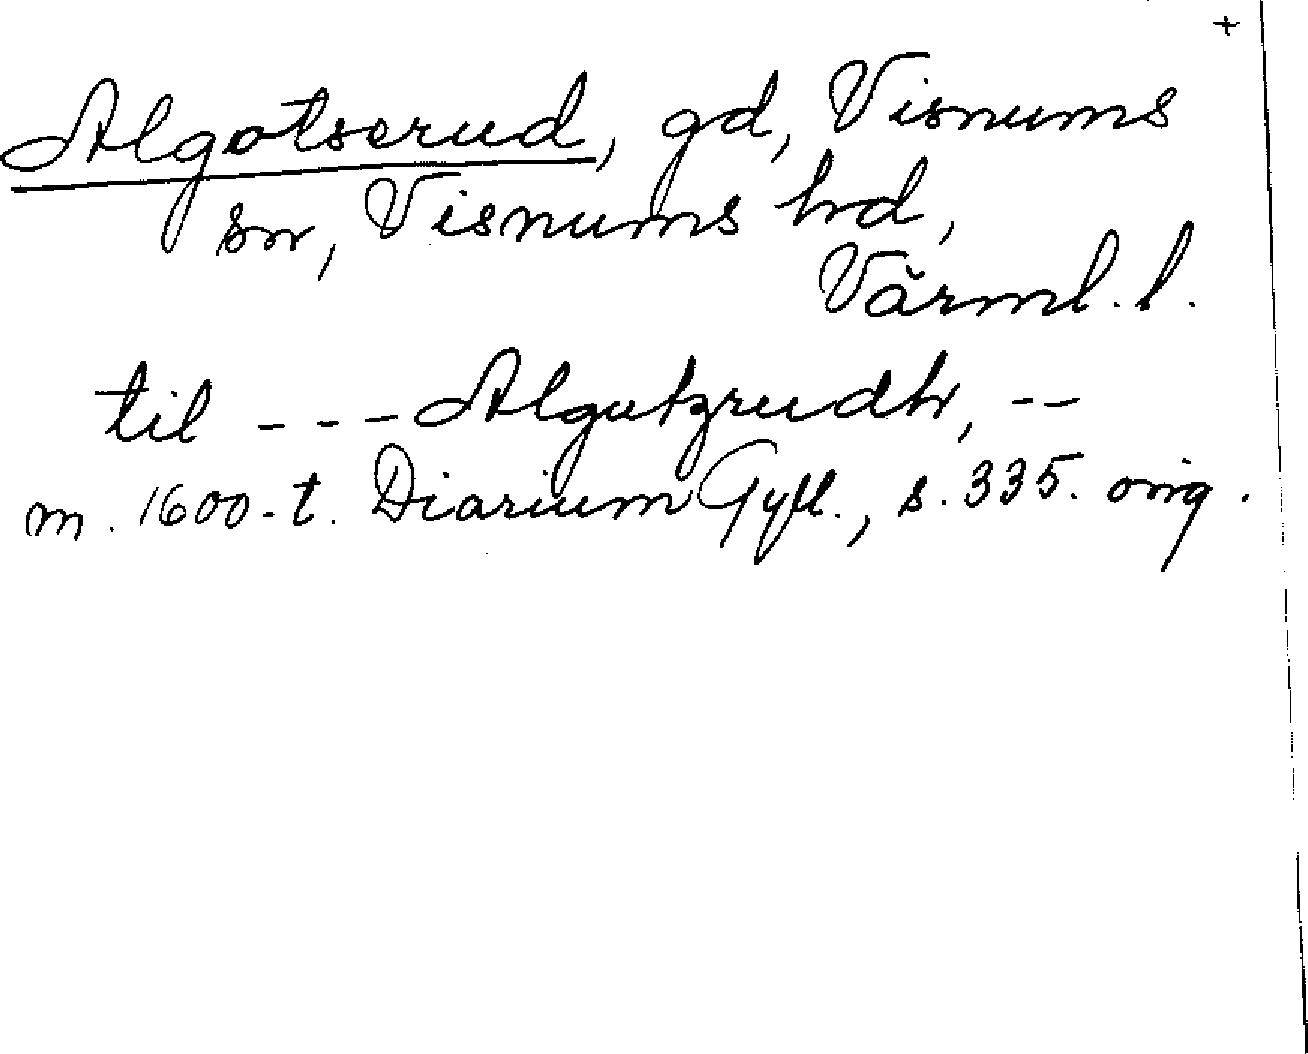 +
Algotserud, gd, Visnums
sn, Visnums hd,
Värml. l.
til - - - Algutzrudh, - -
m. 1600-t. Diarium Gyll., s. 335. orig.